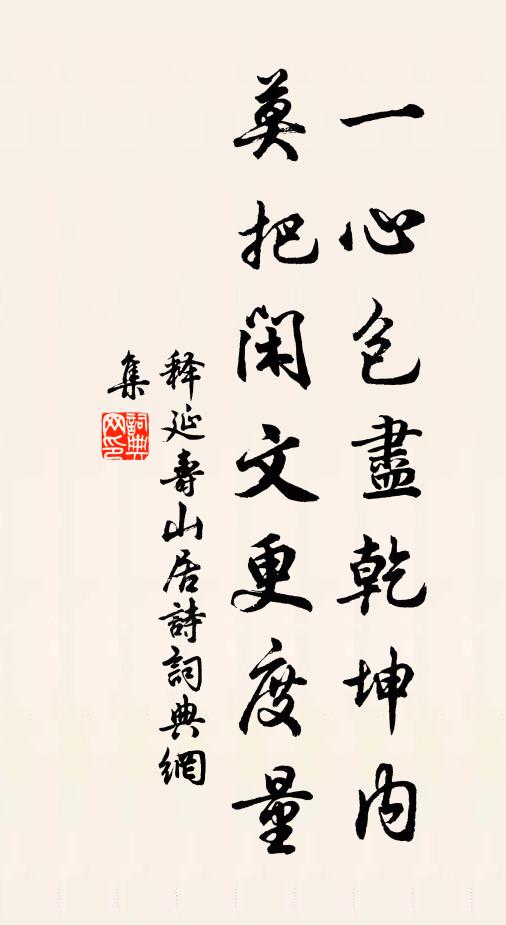 一心包盡乾坤内
莫把閑文更度量
释延壽山居詩詞典網
集
詞典网印